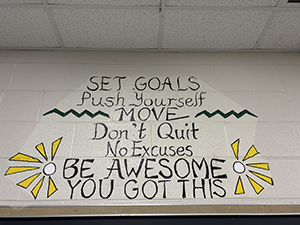 SET GOALS
Push Yourself
MOVE
Don't Quit
No Excuses
BE AWESOME
YOU GOT THIS